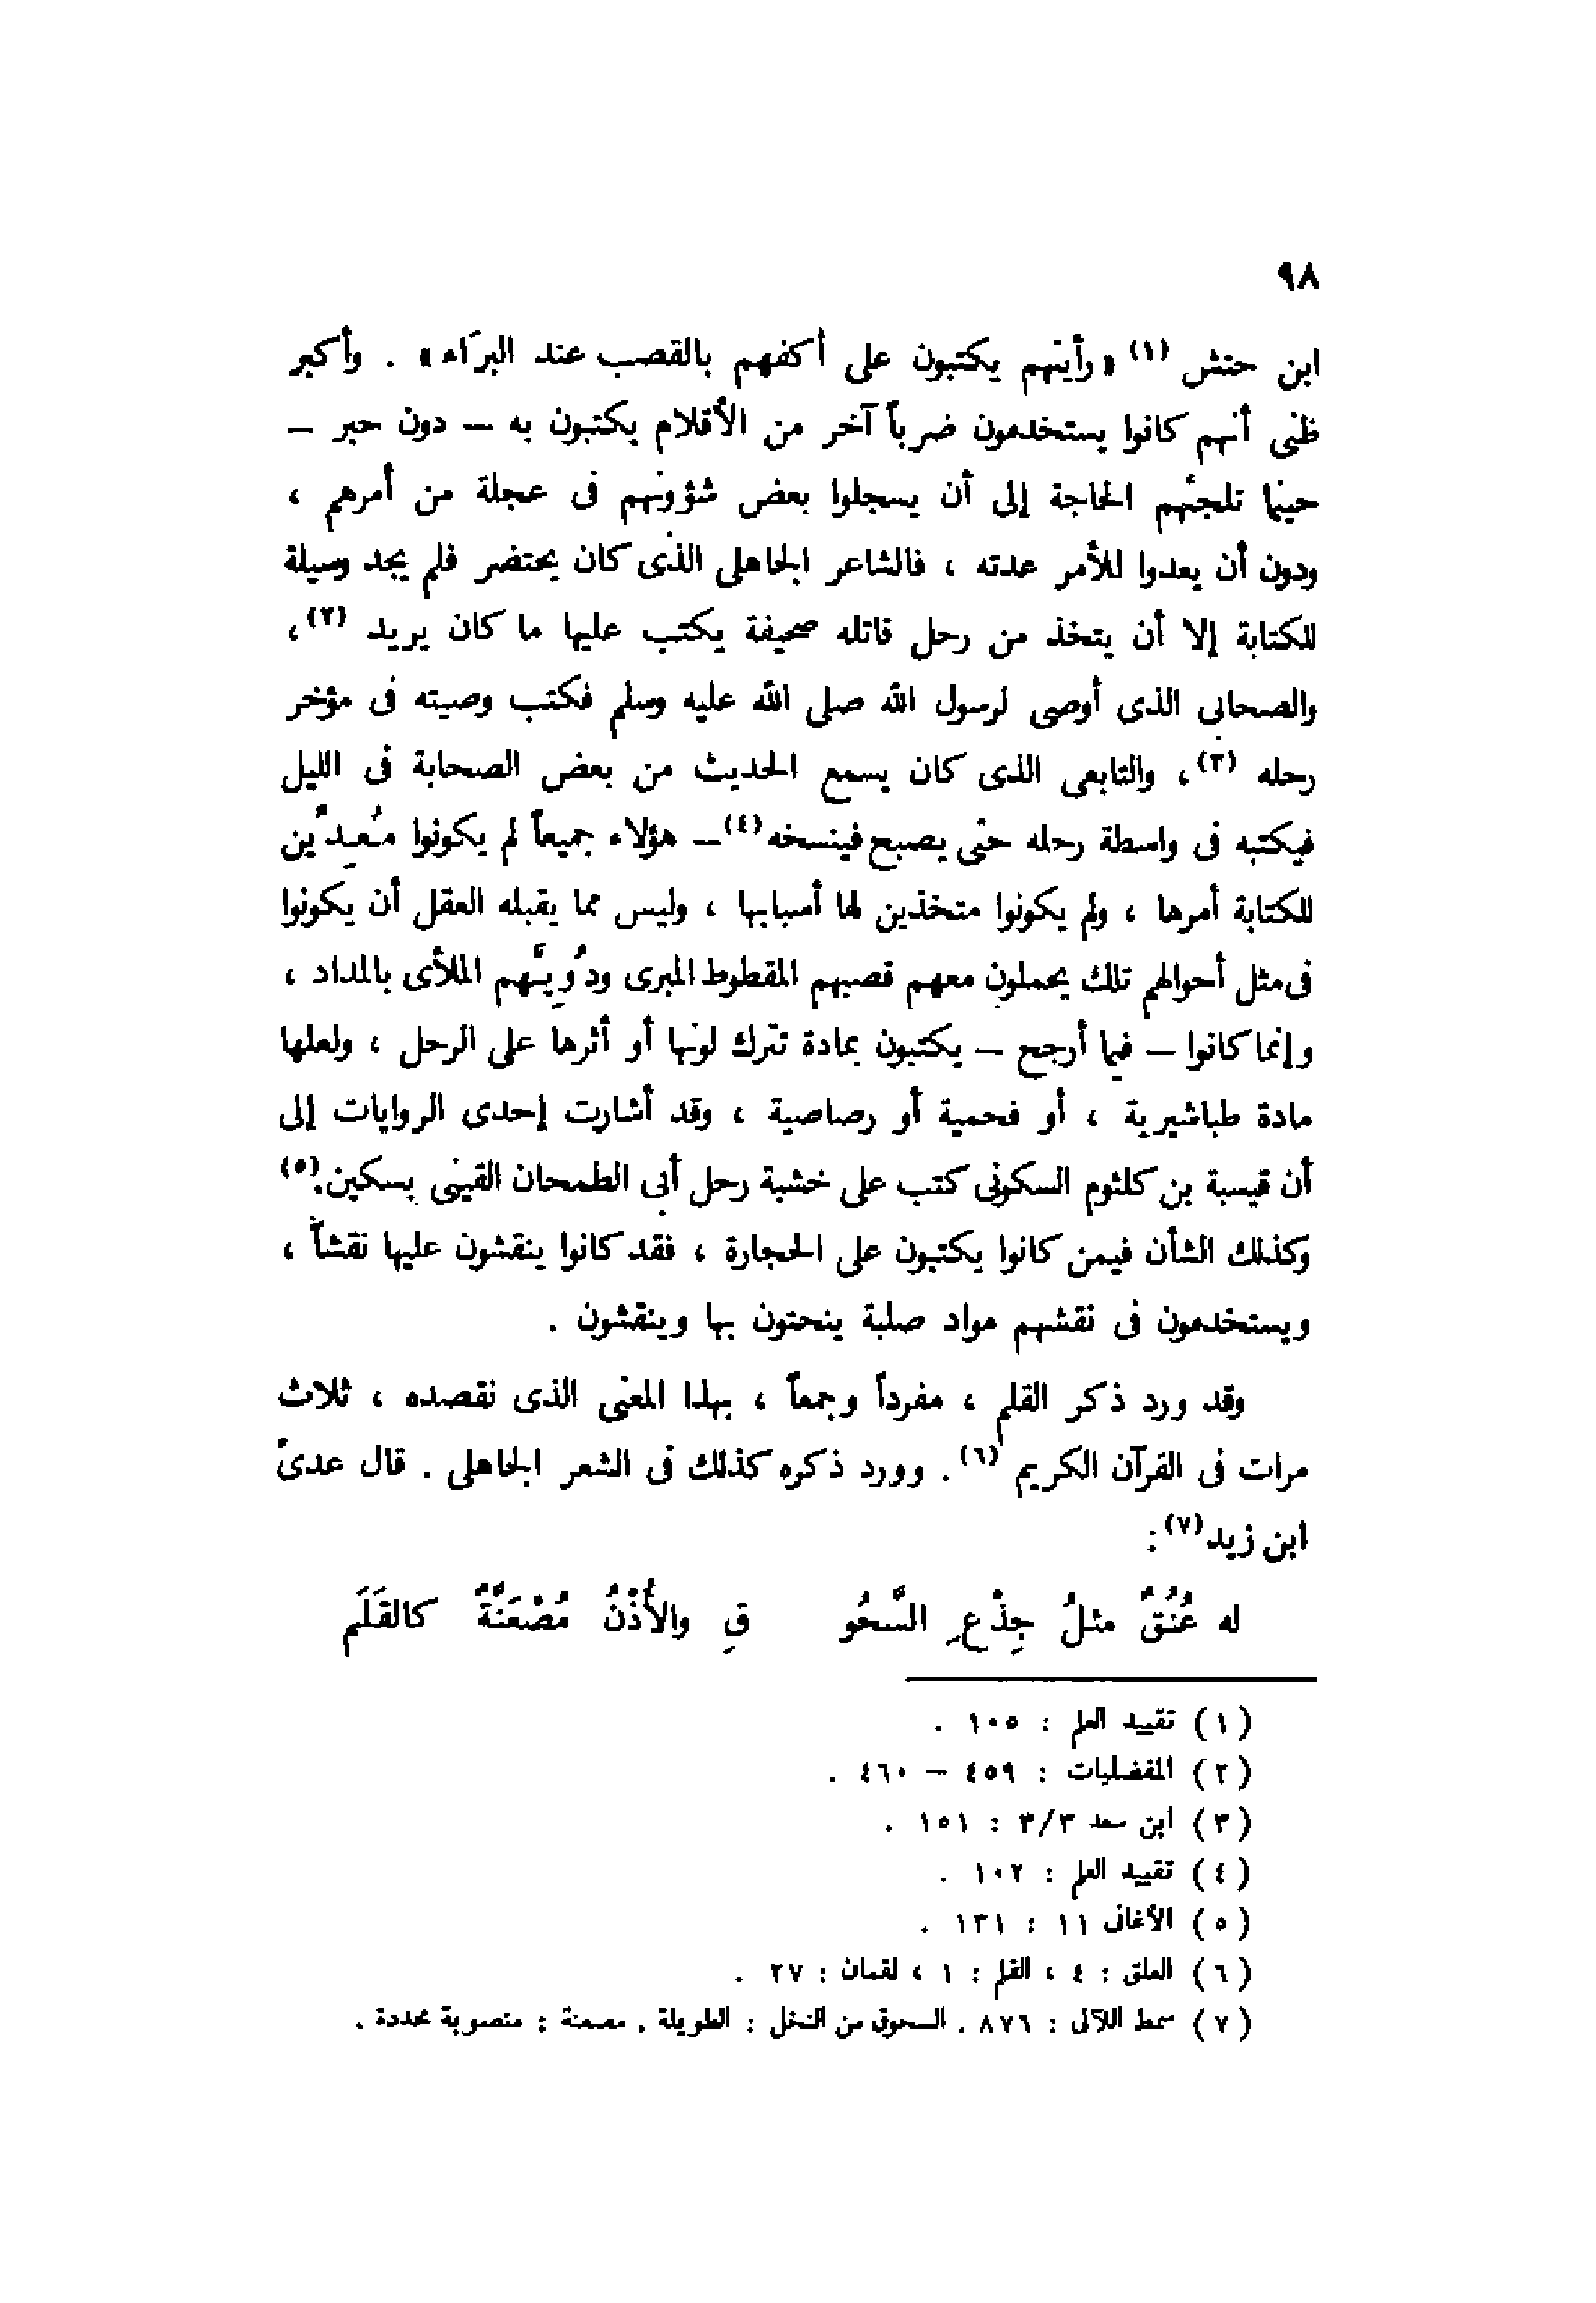 ٩٨
ابن حنش (١) «رأيتهم يكتبون على أكفهم بالقصب عند البرَاء» . وأكبر
ظنى أنهم كانوا يستخدمون ضرباً آخر من الأقلام يكتبون به – دون حبر –
حينما تلجئهم الحاجة إلى أن يسجلوا بعض شؤونهم فى عجلة من أمرهم ،
ودون أن يعدوا للأمر عدته ، فالشاعر الجاهلى الذى كان يحتضر فلم يجد وسيلة
للكتابة إلا أن يتخذ من رحل قاتله صحيفة يكتب عليها ما كان يريد (٢)،
والصحابى الذى أوصى لرسول الله صلى الله عليه وسلم فكتب وصيته فى مؤخر
رحله (٣)، والتابعى الذى كان يسمع الحديث من بعض الصحابة فى الليل
فيكتبه فى واسطة رحله حتى يصبح فينسخه(٤)– هؤلاء جميعاً لم يكونوا مُعِدِّين
للكتابة أمرها ، ولم يكونوا متخذين لها أسبابها ، وليس مما يقبله العقل أن يكونوا
فى مثل أحوالهم تلك يحملون معهم قصبهم المقطوط المبرى ودُوِيَّهم الملأى بالمداد ،
وإنما كانوا – فيما أرجح – يكتبون بمادة تترك لونها أو أثرها على الرحل ، ولعلها
مادة طباشيرية ، أو فحمية أو رصاصية ، وقد أشارت إحدى الروايات إلى
أن قيسبة بن كلثوم السكونى كتب على خشبة رحل أبى الطمحان القينى بسكين.(٥)
وكذلك الشأن فيمن كانوا يكتبون على الحجارة ، فقد كانوا ينقشون عليها نقشاً ،
ويستخدمون فى نقشهم مواد صلبة ينحتون بها وينقشون .
وقد ورد ذكر القلم ، مفرداً وجمعاً ، بهذا المعنى الذى نقصده ، ثلاث
مرات فى القرآن الكريم (٦) . وورد ذكره كذلك فى الشعر الجاهلى . قال عدىّ
ابن زيد(٧):
له عُنُقٌ مثلُ جِذْعِ السَّحُو قِ والأُذْنُ مُصْعَنَّةٌ كالقَلَم
(١) تقييد العلم : ١٠٥ .
(٢) المفضليات : ٤٥٩ – ٤٦٠ .
(٣) ابن سعد ٣/٣ : ١٥١ .
(٤) تقييد العلم : ١٠٢ .
(٥) الأغانى ١١ : ١٣١ .
(٦) العلق : ٤ ، القلم : ١ ، لقمان : ٢٧ .
(٧) سمط اللآلى : ٨٧٦ . السحوق من النخل : الطويلة . مصعنة : منصوبة محددة .